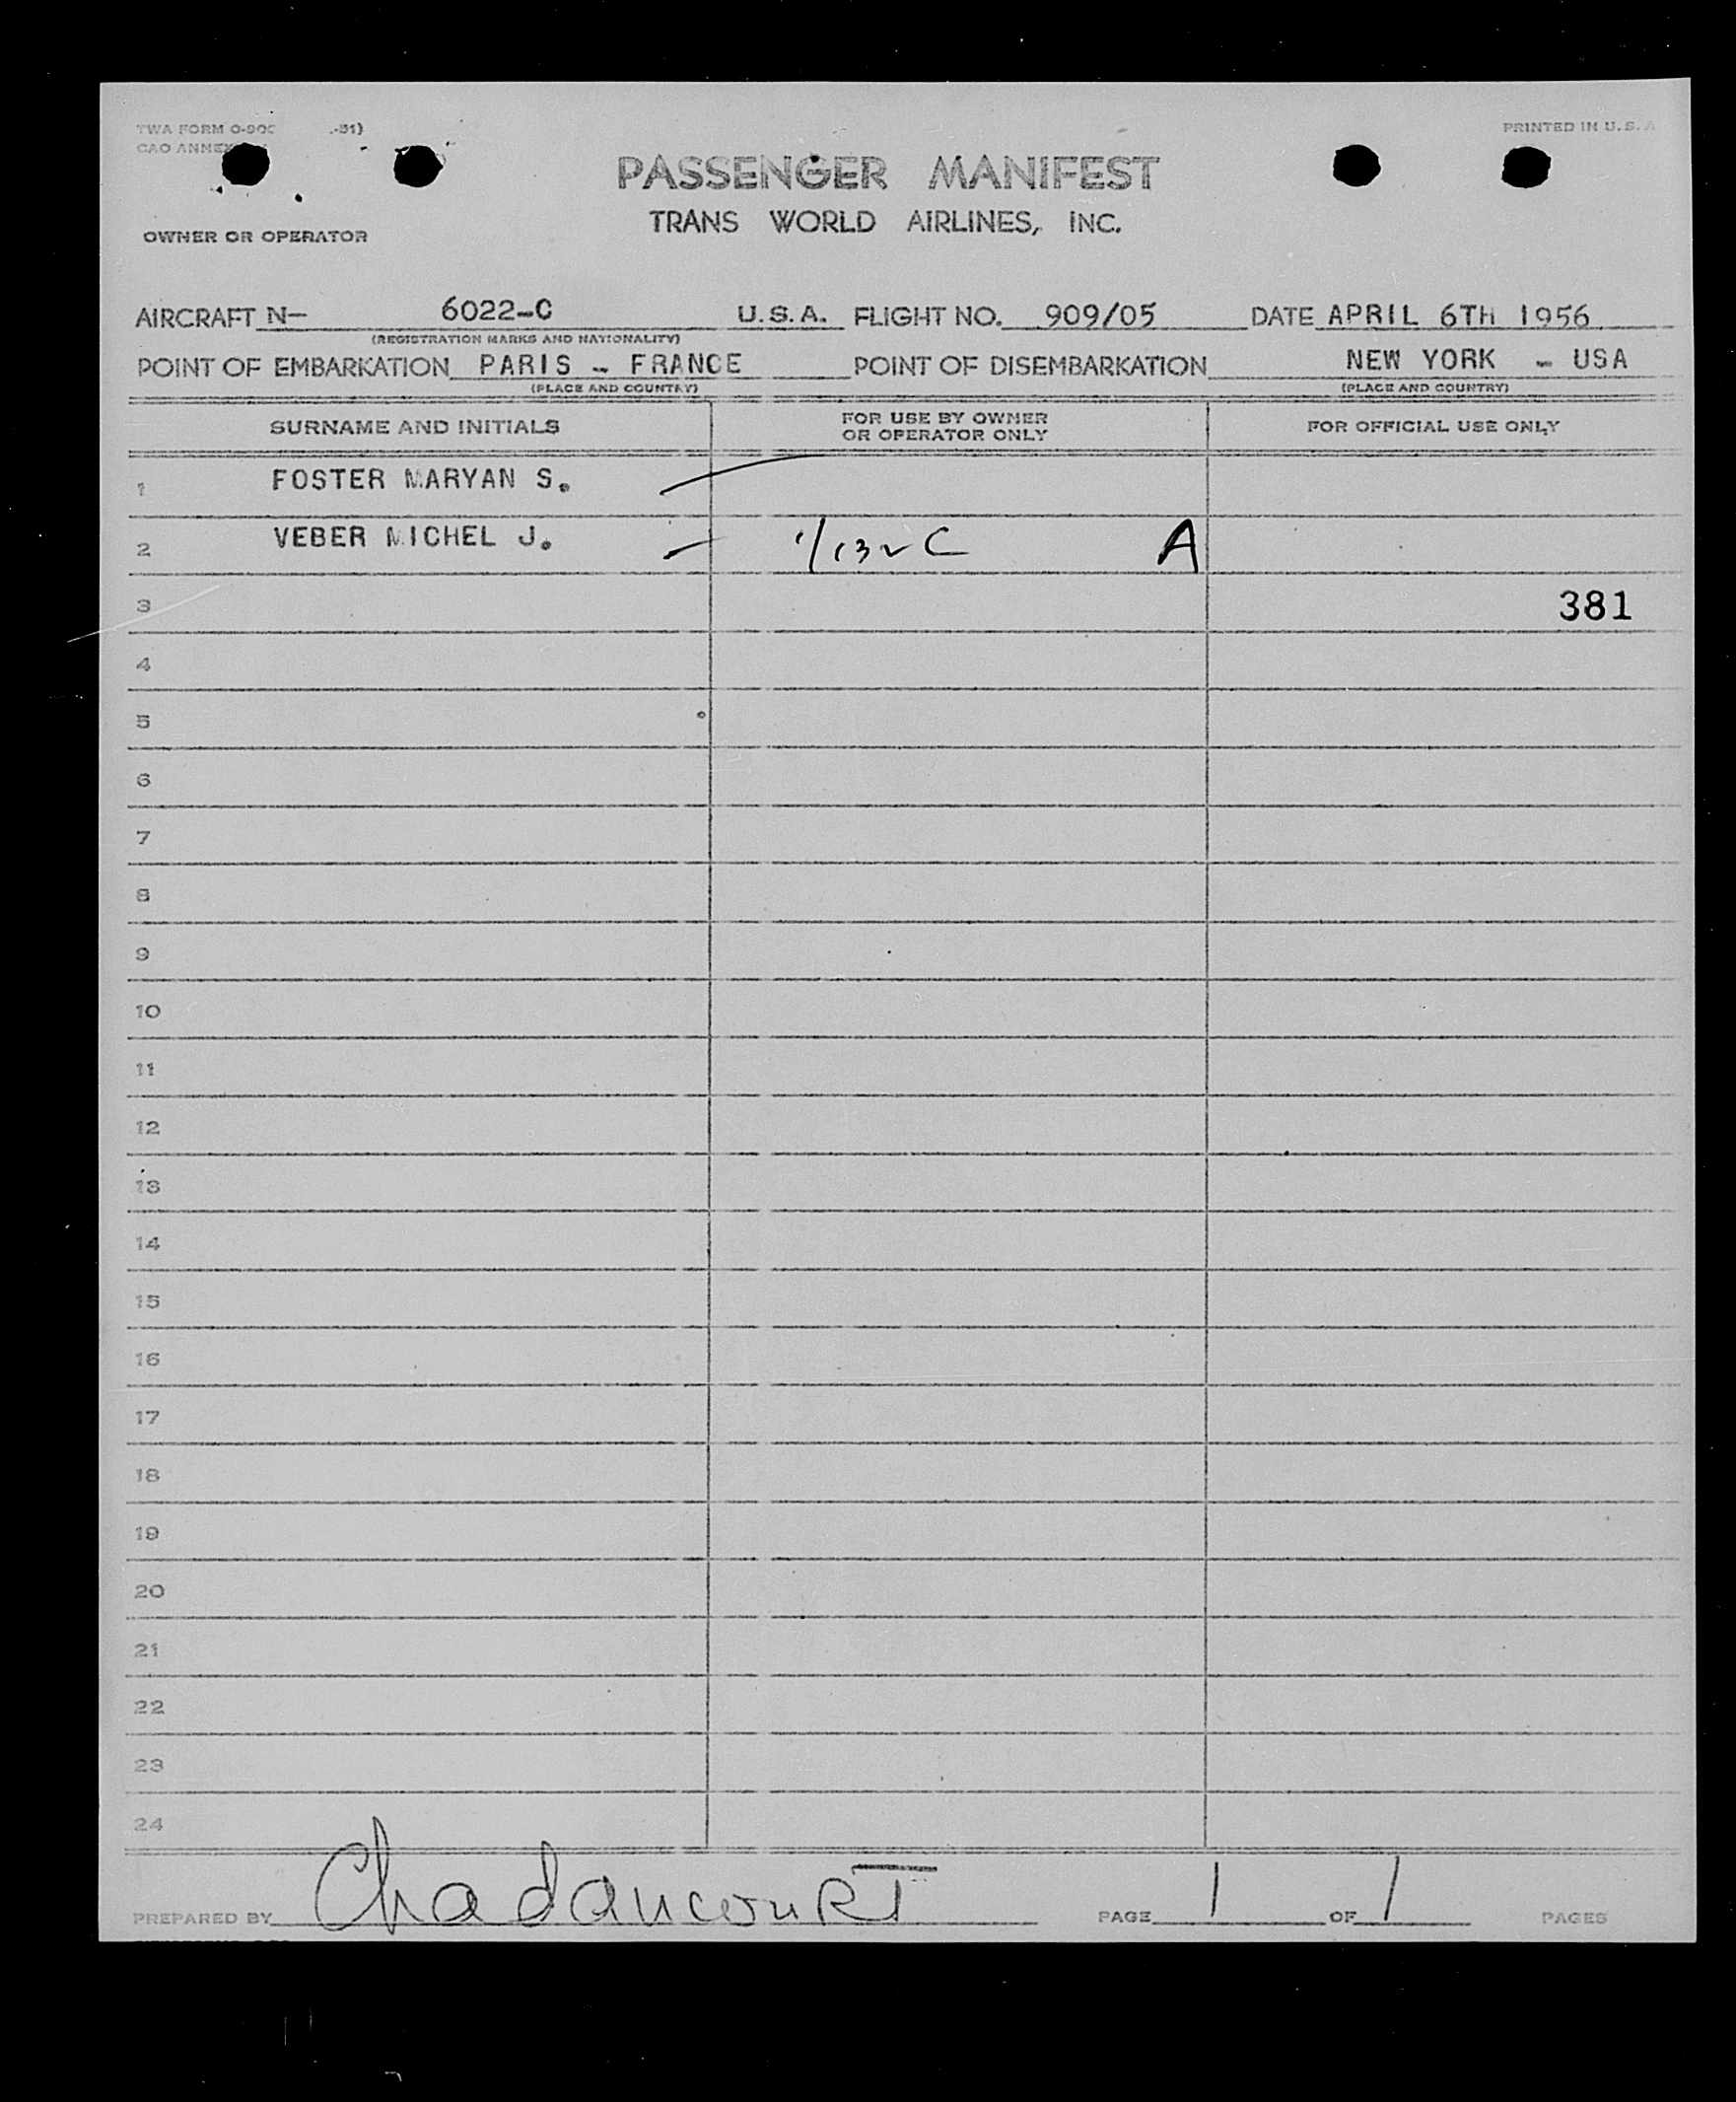 TWA FORM O-90 -51)
PRINTED IN U.S.A
CAO ANNEX
PASSENGER MANIFEST
TRANS WORLD AIRLINES, INC.
OWNER OR OPERATOR
AIRCRAFT N- 6022-C U.S.A. FLIGHT NO. 909/05 DATE APRIL 6TH 1956
(REGISTRATION MARKS AND NATIONALITY)
POINT OF EMBARKATION PARIS - FRANCE POINT OF DISEMBARKATION NEW YORK - USA
(PLACE AND COUNTRY) (PLACE AND COUNTRY)
SURNAME AND INITIALS FOR USE BY OWNER OR OPERATOR ONLY FOR OFFICIAL USE ONLY
1 FOSTER MARYAN S.
2 VEBER MICHEL J. A
3 381
4
5
6
7
8
9
10
11
12
13
14
15
16
17
18
19
20
21
22
23
24
PREPARED BY Chadancourt PAGE 1 OF 1 PAGES